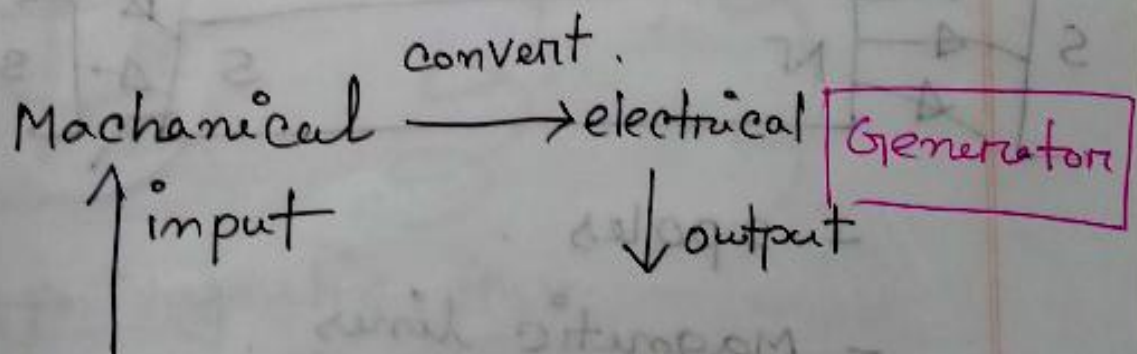 convert.
Machanical → electrical Generator
↑ input ↓ output